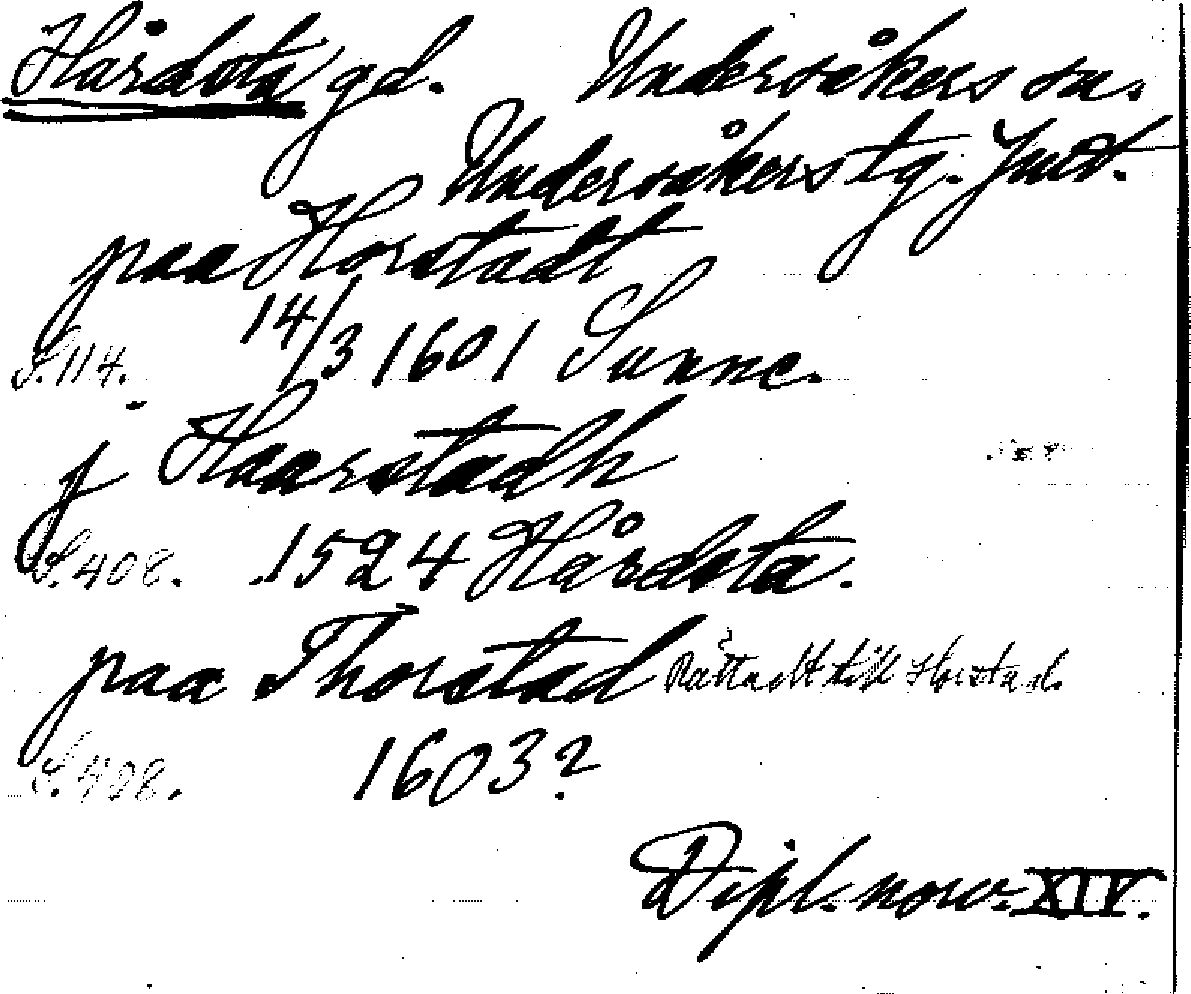 Hårdsta gd. Undersåkers sn.
Undersåkers tg. Jmt.
paa Horstadt
S. 114. 14/3 1601 Sunne.
j Haarstadh
S. 408. 1524 Hårdsta.
paa Thorstad Rättadt till Horstad.
S. 408. 1603?
Dipl. norv. XIV.